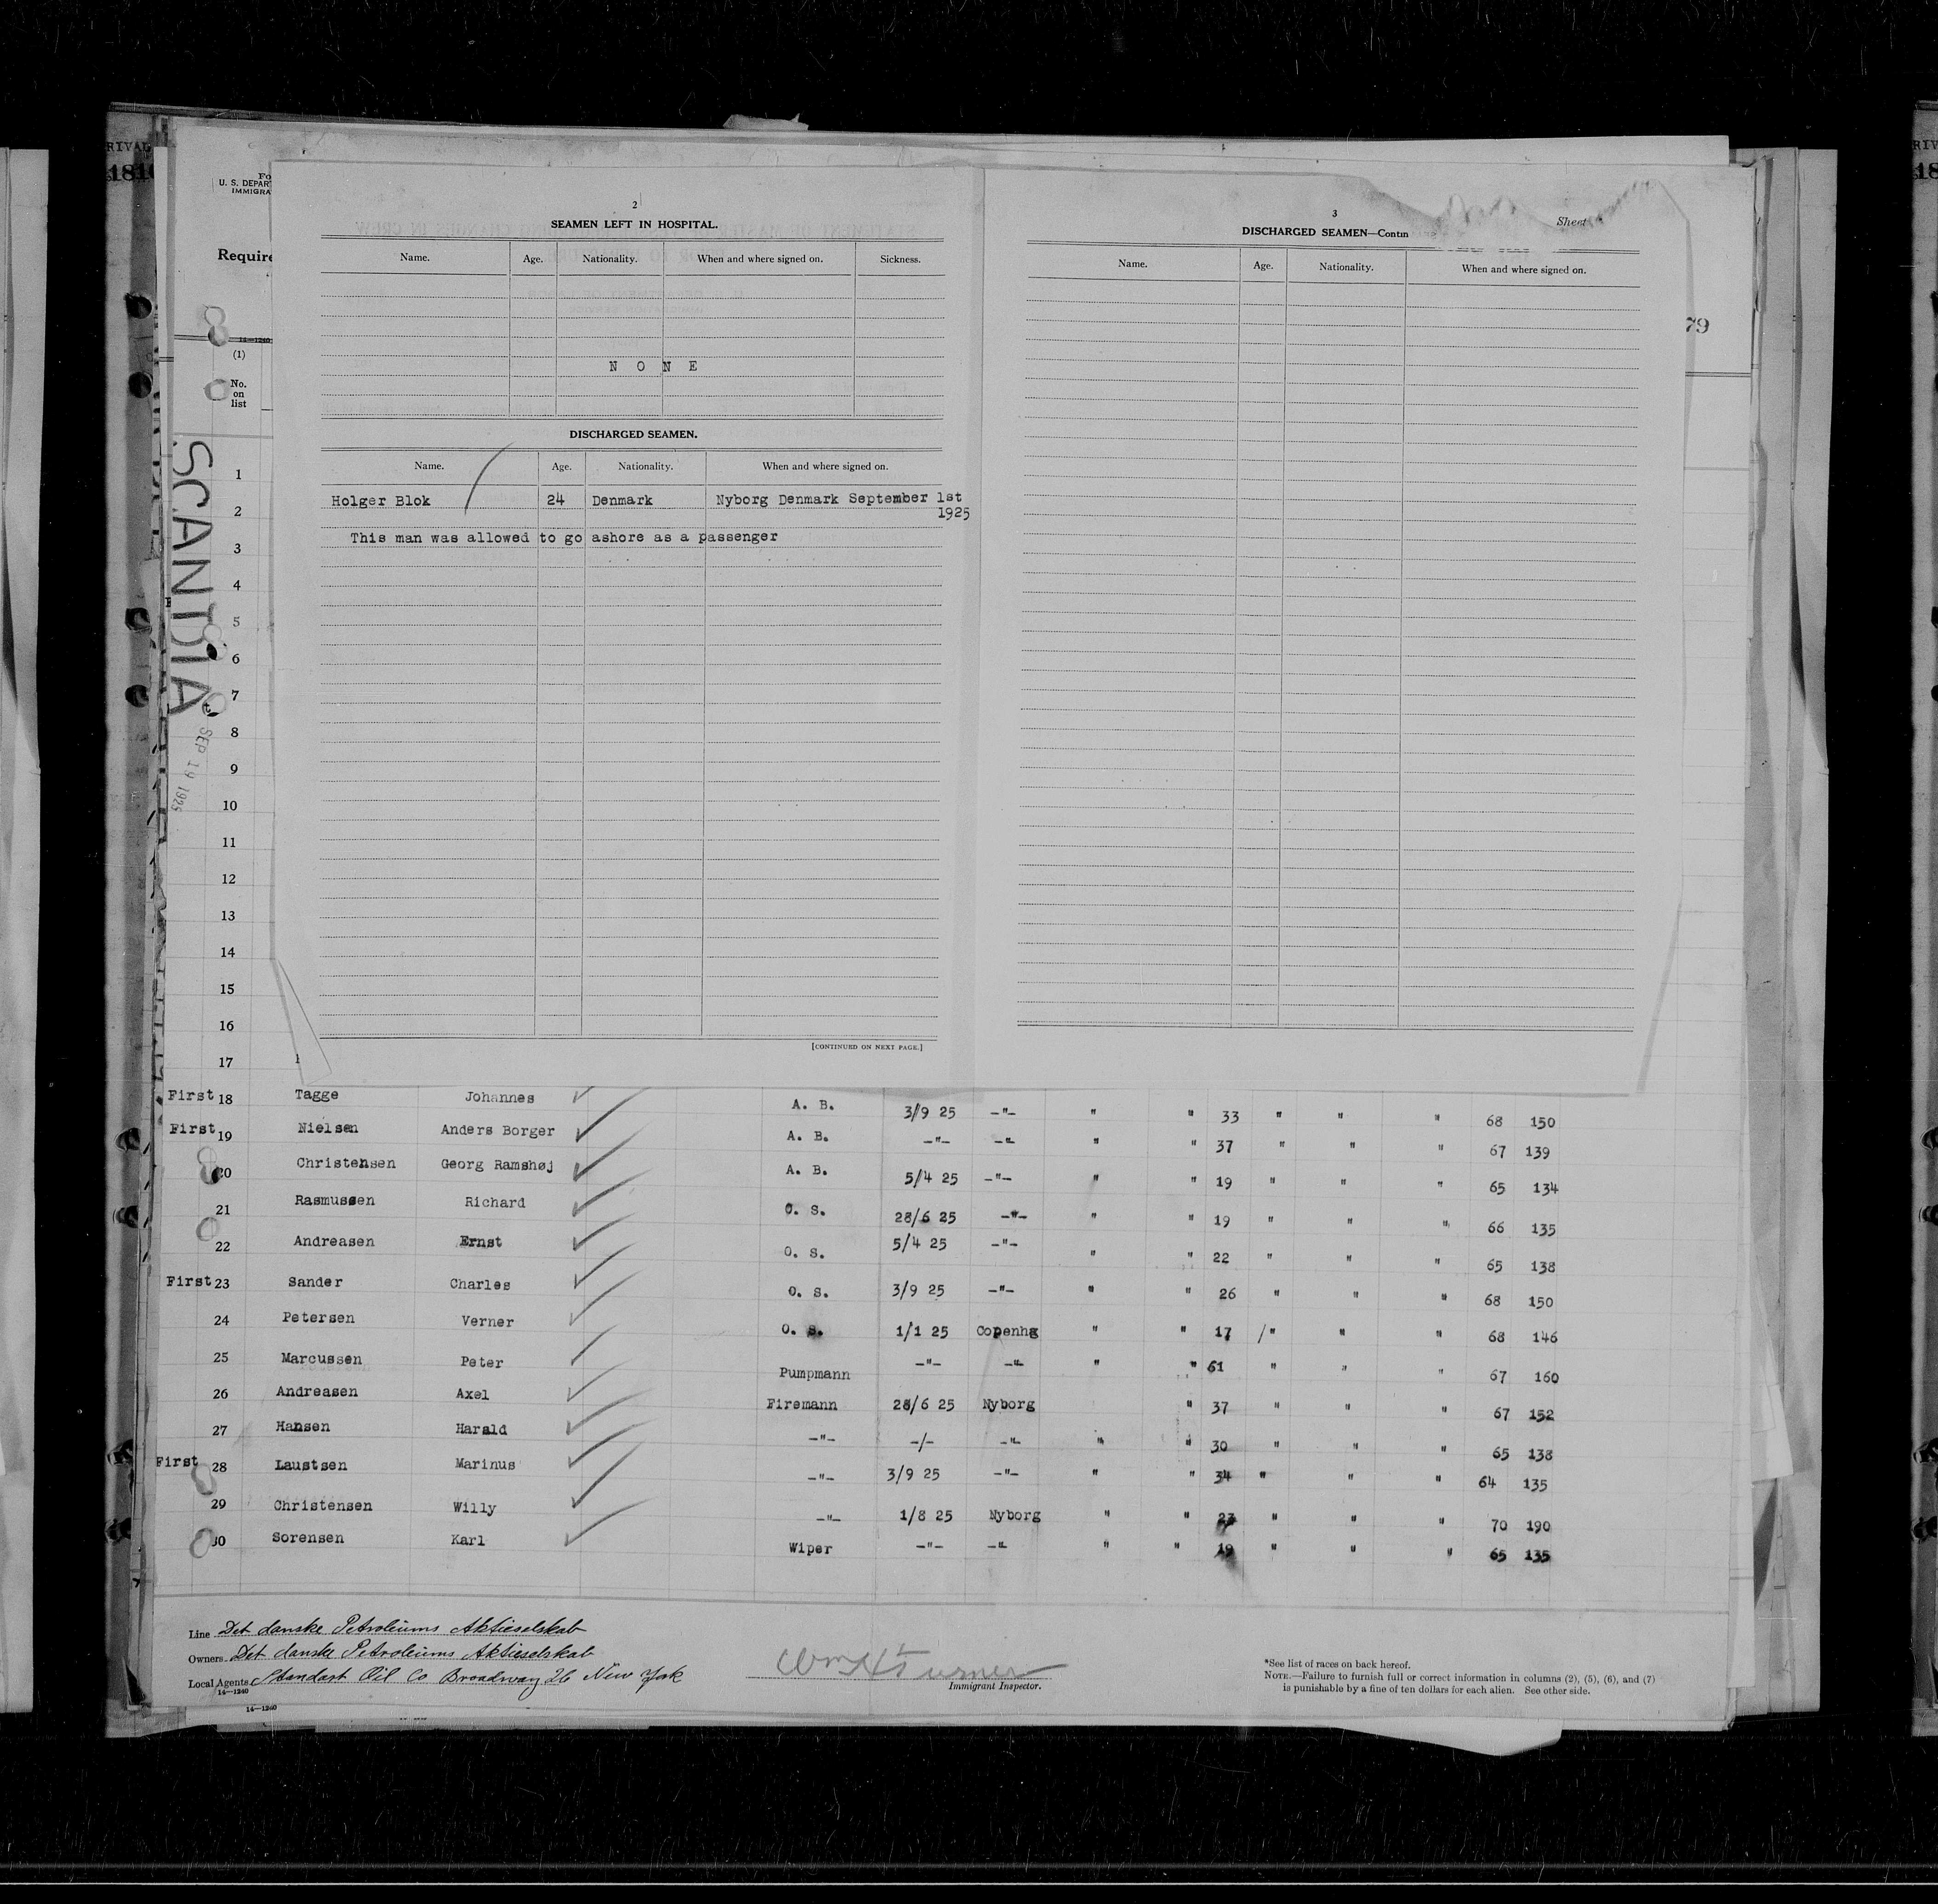 RIVAL
1810
Fo
U. S. DEPAR
IMMIGRA
Require
14—1240
(1)
No.
on
list
SCANDIA
SEP 19 1925
2
SEAMEN LEFT IN HOSPITAL.
Name. Age. Nationality. When and where signed on. Sickness.
N O N E
DISCHARGED SEAMEN.
Name. Age. Nationality. When and where signed on.
Holger Blok 24 Denmark Nyborg Denmark September 1st
1925
This man was allowed to go ashore as a passenger
[CONTINUED ON NEXT PAGE.]
3
Sheet
DISCHARGED SEAMEN—Contin
Name. Age. Nationality. When and where signed on.
79
1
2
3
4
5
6
7
8
9
10
11
12
13
14
15
16
17
First 18 Tagge Johannes A. B. 3/9 25 -"- " " 33 " " " 68 150
First 19 Nielsen Anders Borger A. B. -"- -"- " " 37 " " " 67 139
20 Christensen Georg Ramshøj A. B. 5/4 25 -"- " " 19 " " " 65 134
21 Rasmussen Richard O. S. 28/6 25 -"- " " 19 " " " 66 135
22 Andreasen Ernst O. S. 5/4 25 -"- " " 22 " " " 65 138
First 23 Sander Charles O. S. 3/9 25 -"- " " 26 " " " 68 150
24 Petersen Verner O. S. 1/1 25 Copenhg " " 17 /" " " 68 146
25 Marcussen Peter Pumpmann -"- -"- " " 61 " " " 67 160
26 Andreasen Axel Firemann 28/6 25 Nyborg " 37 " " " 67 152
27 Hansen Harald -"- -/- -"- " " 30 " " " 65 138
First 28 Laustsen Marinus -"- 3/9 25 -"- " " 34 " " " 64 135
29 Christensen Willy -"- 1/8 25 Nyborg " " 23 " " " 70 190
30 Sorensen Karl Wiper -"- -"- " " 19 " " " 65 135
Line Det danske Petroleums Aktieselskab
Owners Det danske Petroleums Aktieselskab
Local Agents Standart Oil Co Broadway 26 New York
14—1240
14—1240
Immigrant Inspector.
*See list of races on back hereof.
NOTE.—Failure to furnish full or correct information in columns (2), (5), (6), and (7)
is punishable by a fine of ten dollars for each alien. See other side.